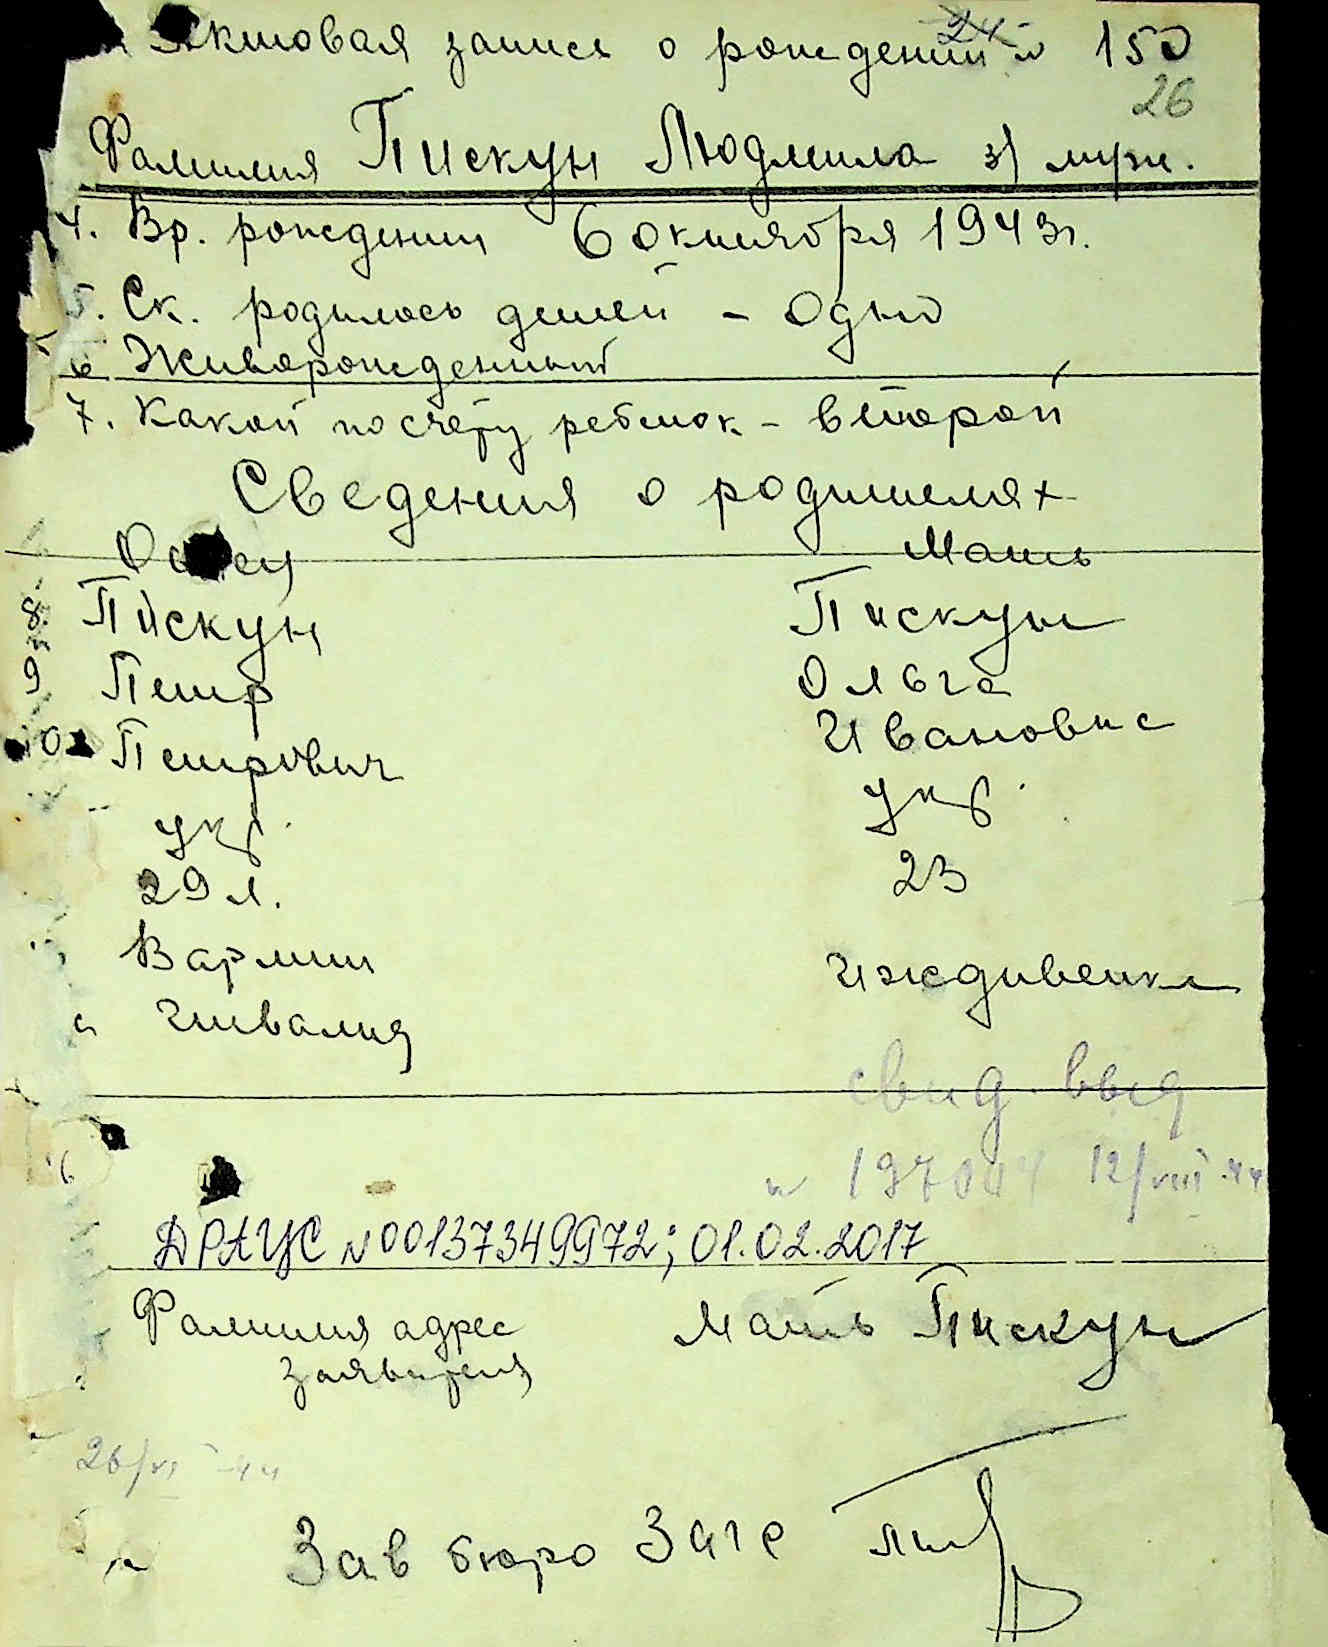 Актовая запись о рождении № 150
24
26
Фамилия Пискун Людмила 3) муж.
4. Вр. рождении 6 октября 1943 г.
5. Ск. родилось детей - одно
6 Живорожденный
7. Какой по счету ребенок - второй
Сведения о родителях
Отец Мать
8. Пискун Пискун
9 Петр Ольга
10 Петрович Ивановна
укр. укр.
29 л. 23
Вармии Иждивенка
свид. выд
№ 197044 12/VIII-44
ДРАЦС №00137349972; 01.02.2017
Фамилия адрес Мать Пискун
заявителя
26/VI-44
Зав бюро Загс